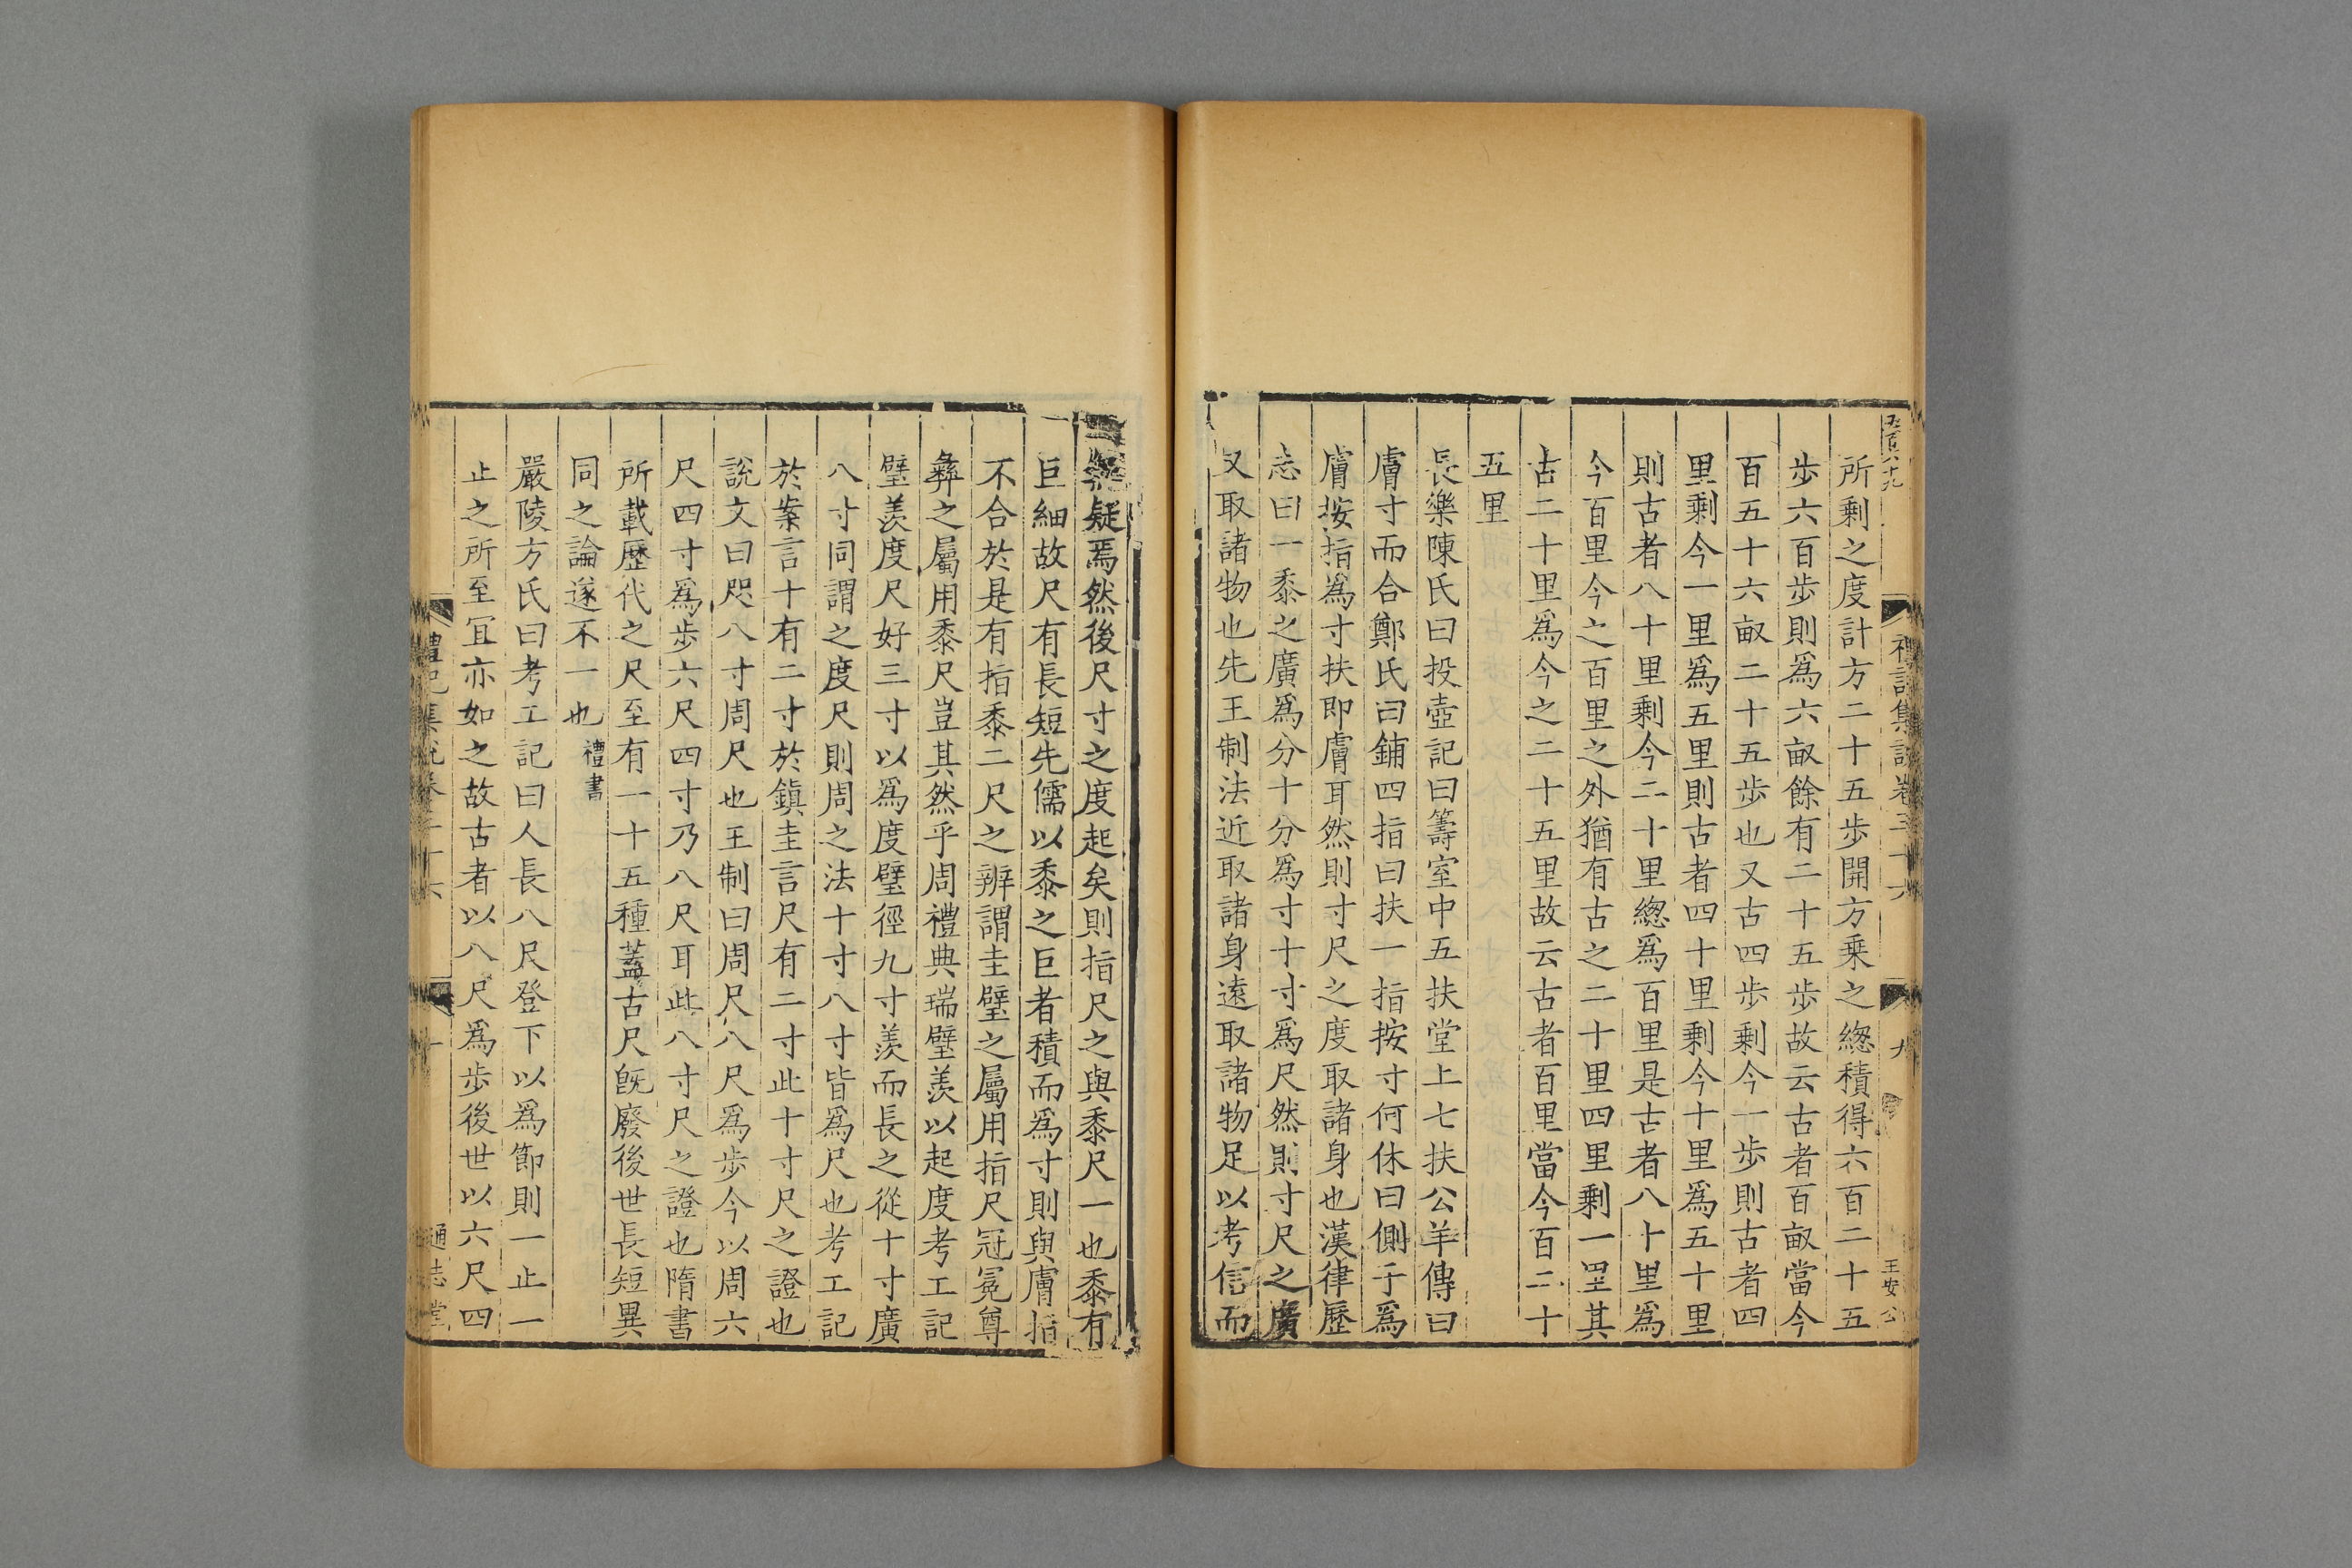 五百八十九
禮記集說卷三十六 九
王安公
所剩之度計方二十五步開方乘之緫積得六百二十五
步六百步則爲六畝餘有二十五步故云古者百畝當今
百五十六畝二十五步也又古四步剩今一步則古者四
里剩今一里爲五里則古者四十里剩今十里爲五十里
則古者八十里剩今二十里緫爲百里是古者八十里爲
今百里今之百里之外猶有古之二十里四里剩一里其
古二十里爲今之二十五里故云古者百里當今百二十
五里
長樂陳氏曰投壺記曰籌室中五扶堂上七扶公羊傳曰
膚寸而合鄭氏曰鋪四指曰扶一指按寸何休曰側手爲
膚按指爲寸扶即膚耳然則寸尺之度取諸身也漢律歷
志曰一黍之廣爲分十分爲寸十寸爲尺然則寸尺之廣
又取諸物也先王制法近取諸身遠取諸物足以考信而
無疑焉然後尺寸之度起矣則指尺之與黍尺一也黍有
巨細故尺有長短先儒以黍之巨者積而爲寸則與膚指
不合於是有指黍二尺之辨謂圭璧之屬用指尺冠冕尊
彝之屬用黍尺豈其然乎周禮典瑞璧羨以起度考工記
璧羨度尺好三寸以爲度璧徑九寸羨而長之從十寸廣
八寸同謂之度尺則周之法十寸八寸皆爲尺也考工記
於案言十有二寸於鎮圭言尺有二寸此十寸尺之證也
說文曰咫八寸周尺也王制曰周尺八尺爲步今以周六
尺四寸爲步六尺四寸乃八尺耳此八寸尺之證也隋書
所載歷代之尺至有一十五種蓋古尺旣廢後世長短異
同之論遂不一也 禮書
嚴陵方氏曰考工記曰人長八尺登下以爲節則一止一
止之所至冝亦如之故古者以八尺爲步後世以六尺四
禮記集說卷三十六 十
通志堂